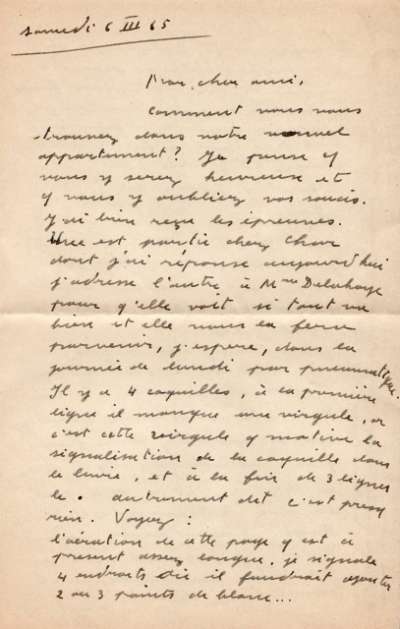 samedi 6 III 65
Mon cher ami,
Comment vous vous
trouvez dans votre nouvel
appartement? Je pense q
vous y serez heureuse et
q vous y oubliez vos soucis.
J'ai bien reçu les épreuves.
Une est partie chez Char
dont j'ai réponse aujourd'hui
j'adresse l'autre à Mme Delahaye
pour q'elle voit si tout va
bien et elle vous la fera
parvenir, j'espère, dans la
journée de lundi par pneumatique.
Il y a 4 coquilles, à la première
ligne il manque une virgule, or
c'est cette virgule q motive la
signalisation de la coquille dans
le livre, et à la fin de 3 lignes
le . autrement dit c'est presq
rien. Voyez :
l'aération de cette page q est à
présent assez longue. je signale
4 endroits où il faudrait ajouter
2 ou 3 points de blanc...